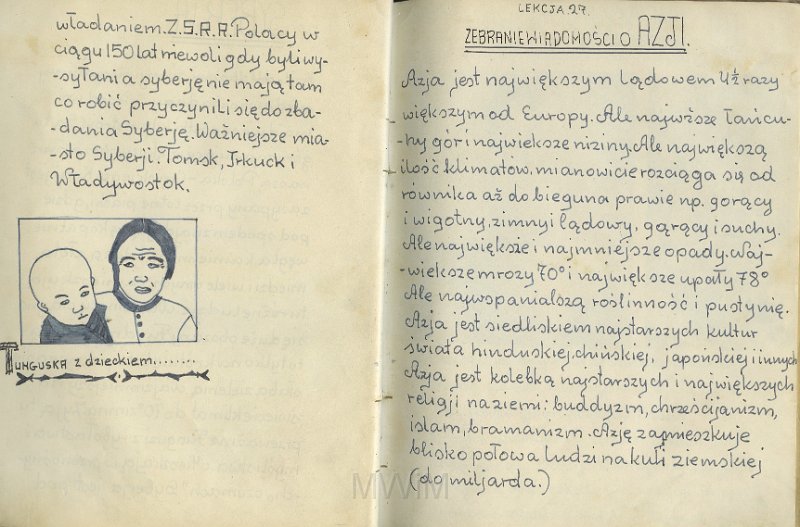 władaniem. Z.S.R.R. Polacy w
ciągu 150 lat niewoli gdy byli wy-
-syłani a syberję nie mają tam
co robić przyczynili się do zba-
-dania Syberję. Ważniejsze mia-
-sto Syberji. Tomsk, Irkuck i
Władywostok.
TUNGUSKA z dzieckiem........
LEKCJA 27.
ZEBRANIE WIADOMOŚCI O AZJI.
Azja jest największym lądowem 4½ razy
większym od Europy. Ale najwższe łańcu-
-hy gór i najwieksze niziny. Ale największą
ilość klimatów, mianowicie rozciąga się od
równika aż do bieguna prawie np. gorący
i wigotny, zimny i lądowy, gąrący i suchy.
Ale największe i najmniejsze opady. Naj-
-wieksze mrozy 70° i największe upały 78°
Ale najwspanialszą roślinność i pustynię.
Azja jest siedliskiem najstarszych kultur
świata hinduskiej, chińskiej, japońskiej i innych
Azja jest kolebką najstarszych i największych
religji na ziemi: buddyzm, chrześcijanizm,
islam, bramanizm. Azję zamieszkuje
blisko połowa ludzi na kuli ziemskiej
(do miljarda.)
MWM